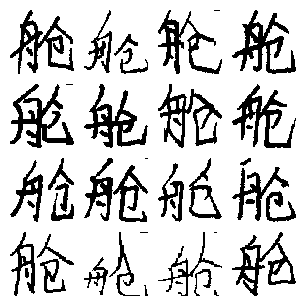 舱舱舱舱
舱舱舱舱
舱舱舱舱
舱舱舱舱